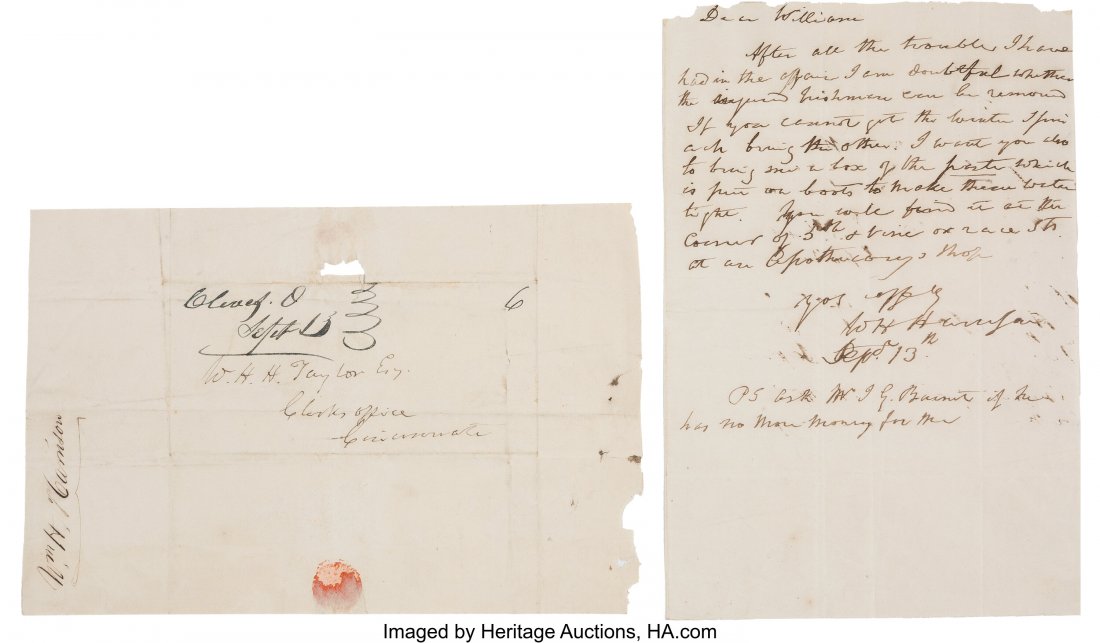 Cleves. O
Sept 13
6
W. H. H. Taylor Esq.
Clerks office
Cincinnati
Wm H. Harrison
Dear William
After all the trouble I have
had in the affair I am doubtful whether
the injured Irishman can be removed
If you cannot get the winter Spin
ach bring the other. I want you also
to bring me a box of the paste which
is put on boots to make them water
tight. You will find it at the
corner of 5th & Vine or race Sts
at an Apothecarys Shop
W H Harrison
Sepr. 13th
PS ask Mr J G. Burnet if he
has no more money for me
Imaged by Heritage Auctions, HA.com